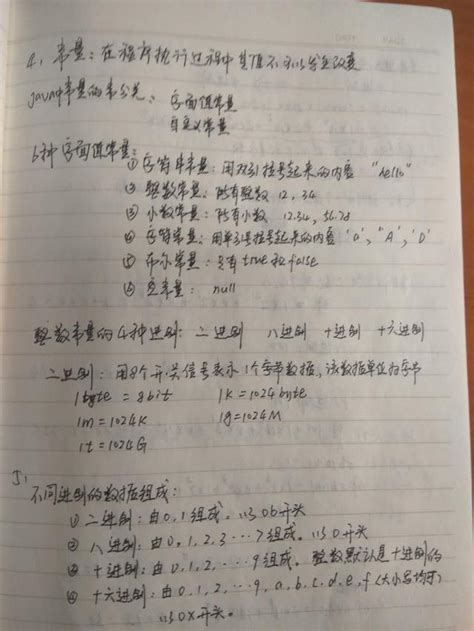 4、常量：在程序执行过程中其值不可以发生改变
java中常量的分类：字面值常量
自定义常量
6种字面值常量：
① 字符串常量：用双引号括起来的内容 "hello"
② 整数常量：所有整数 12, 34
③ 小数常量：所有小数 12.34, 56.78
④ 字符常量：用单引号括起来的内容 'a', 'A', 'D'
⑤ 布尔常量：只有true和false
⑥ 空常量： null
整数常量的4种进制：二进制 八进制 十进制 十六进制
二进制：用8个开关信号表示1个字节数据，该数据单位为字节
1byte = 8bit 1k = 1024byte
1m = 1024K 1g = 1024M
1t = 1024G
5、
不同进制的数据组成：
① 二进制：由0,1组成。以0b开头
② 八进制：由0,1,2,3…7组成。以0开头
③ 十进制：由0,1,2,…9组成。整数默认是十进制的
④ 十六进制：由0,1,2,…9,a,b,c,d,e,f（大小写均可）
以0X开头。